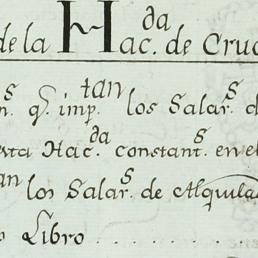 de la Hac.da de Cruc
n.s q.e imp.tan los Salar.s d
sta Hac.da constant.s en el
an los Salar.s de Alquila
Libro . . . . . . . . .